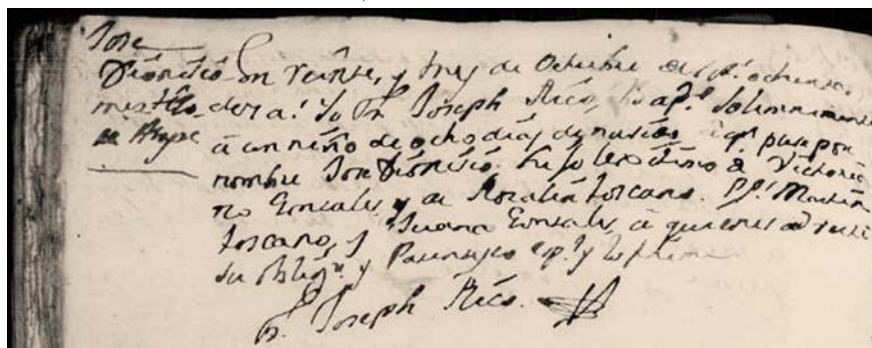 Jose
Dionisio en veinte, y tres de Octubre de ochenta
mestizo dos a.s Yo Fr. Joseph Rico, bap.e Solemnemente
de Atope a un niño de ocho dias de nacido à q.n puse por
nombre Jose Dionisio. hijo lexitimo de Victoria
no Gonsales, y de Rosalia toscano. pp.s Martin
toscano, y Juana Gonsales, à quienes adverti
su oblig.n y Parentesco esp.l y lo firme
Fr. Joseph Rico.